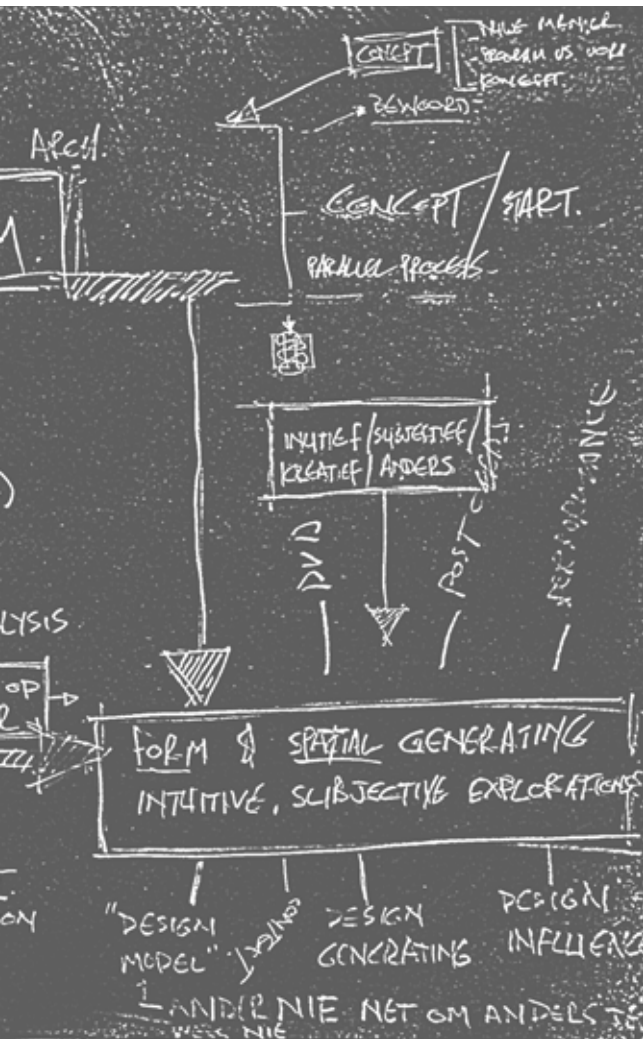 CONCEPT
PROGRAM VS. VORM
KONCEPT.
BEWOORD
ARCH.
M
CONCEPT / START.
PARALLEL PROCESS
INUTIEF / SUBJECTIEF /
KREATIEF / ANDERS
DVD
POST
PERFORMANCE
LYSIS
OP
FORM & SPATIAL GENERATING
INTUITIVE, SUBJECTIVE EXPLORATIONS
ON
"DESIGN
MODEL"
CONTEXT
DESIGN
GENERATING
DESIGN
INFLUENCE
ANDER NIE NET OM ANDERS TE
WEES NIE